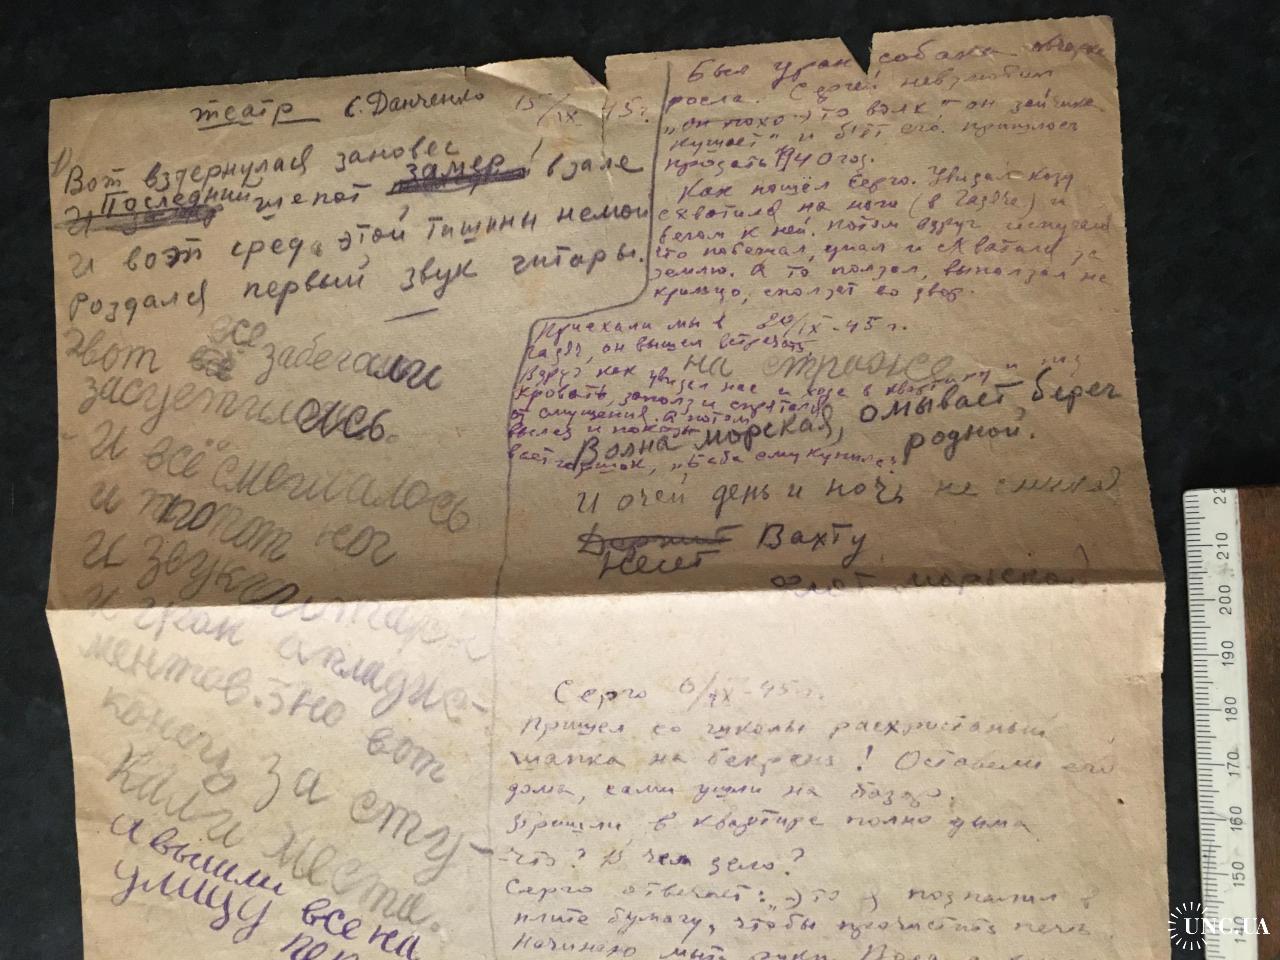 театр С. Данченко 15/IX 45г.
1) Вот вздернулася зановес!
Последний шепот замер в зале
И вот среди этой тишины немой
Роздался первый звук гитары.
И вот все забегали
засуетились.
И всё смешалось
и топот ног
и звук гитары
и гром аплодис-
ментов. Но вот
конец за сту-
кали места.
И вышли все на
улицу
Был у них собака овчарка
росла. Сергей невзлюбил
„он похо это волк" он зайчика
кушает" и бьёт его. пришлось
продать 1940 год.
Как пошёл Серго. Увидал козу
схватился на ноги (в Гадяче) и
бегом к ней. Потом вдруг испугался
что побежал, упал и схватился за
землю. А то ползал, выползал на
крыльцо, сползет во двор.
Приехали мы в 20/IX-45 г.
Гадяч, он вышел встречать
Вдруг как увидел нас и ходе в квартиру и под
кровать, заполз и спрятался
от смущения. А потом
вылез и показы
вает горшок, „Баба ему купила"
на стороже
Волна морская, омывает берег
родной.
И очей день и ночь не смыкая
Держит Вахту
Несет
Флот морской
Серго 6/IX-45 г.
Пришел со школы расхристаный
шапка на бекрень! Оставили его
дома, сами ушли на базар.
Пришли в квартире полно дыма
-Что? В чем дело?
Серго отвечает: „Это я подпалил в
плите бумагу, чтобы прочистить печь.
Начинаю мыть руки. Вода
UNC.UA
220
210
200
190
180
170
160
150